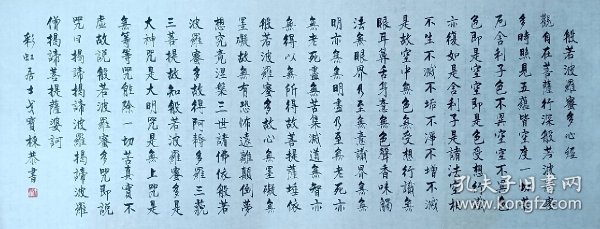 般若波羅蜜多心經
觀自在菩薩行深般若波羅蜜
多時照見五蘊皆空度一切苦
厄舍利子色不異空空不異色
色即是空空即是色受想行識
亦復如是舍利子是諸法空相
不生不滅不垢不淨不增不減
是故空中無色無受想行識無
眼耳鼻舌身意無色聲香味觸
法無眼界乃至無意識界無無
明亦無無明盡乃至無老死亦
無老死盡無苦集滅道無智亦
無得以無所得故菩提薩埵依
般若波羅蜜多故心無罣礙無
罣礙故無有恐怖遠離顛倒夢
想究竟涅槃三世諸佛依般若
波羅蜜多故得阿耨多羅三藐
三菩提故知般若波羅蜜多是
大神咒是大明咒是無上咒是
無等等咒能除一切苦真實不
虛故說般若波羅蜜多咒即說
咒曰揭諦揭諦波羅揭諦波羅
僧揭諦菩提薩婆訶
彩虹居士戈寶棟恭書
孔夫子旧书网